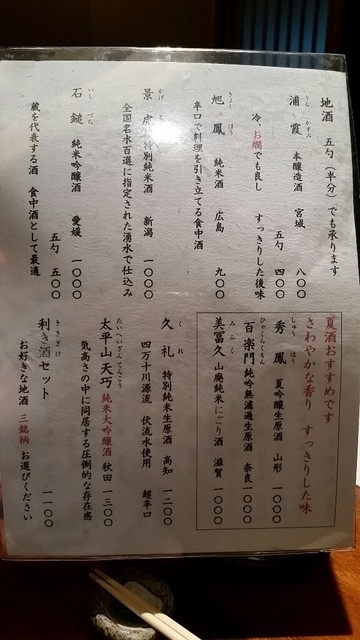 地酒 五勺(半分)でも承ります
うら かすみ
浦霞 本醸造酒 宮城 八〇〇
五勺 四〇〇
冷、お燗でも良し すっきりした後味
きょく ほう
旭鳳 純米酒 広島 九〇〇
辛口で料理を引き立てる食中酒
かげ
景虎 特別純米酒 新潟 一〇〇〇
全国名水百選に指定された湧水で仕込み
いし づち
石鎚 純米吟醸酒 愛媛 一〇〇〇
五勺 五〇〇
蔵を代表する酒 食中酒として最適
夏酒おすすめです
さわやかな香り すっきりした味
しゅう ほう
秀鳳 夏吟醸生原酒 山形 一〇〇〇
ひゃくらくもん
百楽門 純吟無濾過生原酒 奈良 一〇〇〇
みふく
美冨久 山廃純米にごり酒 滋賀 一〇〇〇
く れ
久礼 特別純米生原酒 高知 一二〇〇
四万十川源流 伏流水使用 超辛口
たいへいざんてんこう
太平山天巧 純米大吟醸酒 秋田 一三〇〇
気高さの中に同居する圧倒的な存在感
ききざけ
利き酒セット 一一〇〇
お好きな地酒 三銘柄 お選びください